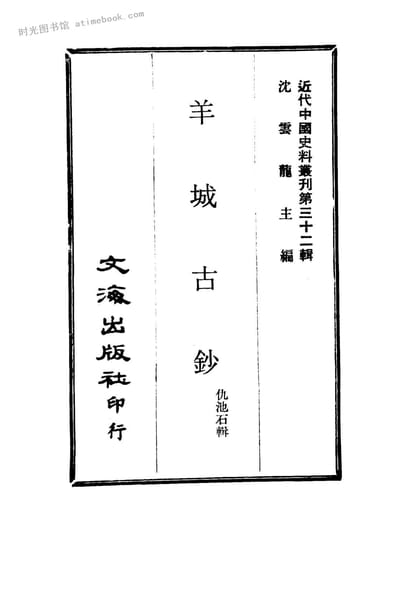 时光图书馆 atimebook.com
近代中國史料叢刊第三十二輯
沈雲龍主編
羊城古鈔
仇池石輯
文海出版社印行